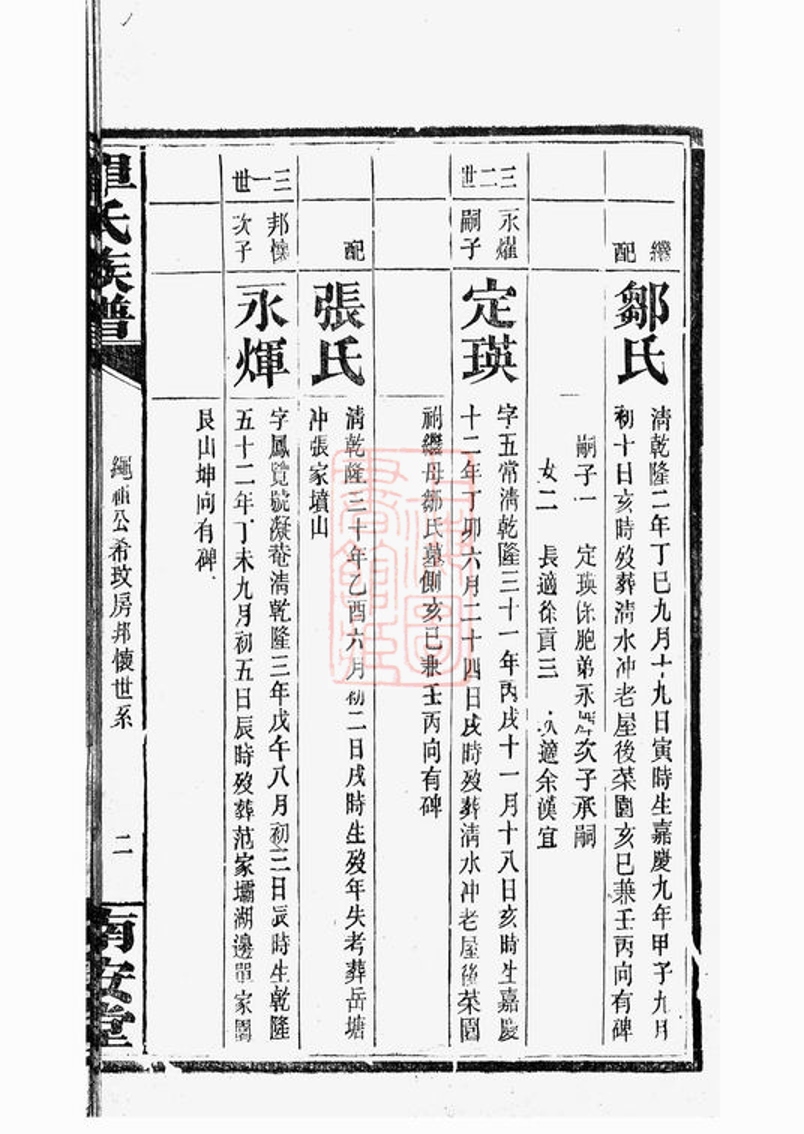 繼配
鄒氏
清乾隆二年丁巳九月十九日寅時生嘉慶九年甲子九月
初十日亥時歿葬清水冲老屋後菜園亥巳兼壬丙向有碑
嗣子一 定瑛係胞弟永輝次子承嗣
女二 長適徐貢三 次適余漢宜
三二世
永燿嗣子
定瑛
字五常清乾隆三十一年丙戌十一月十八日亥時生嘉慶
十二年丁卯六月二十四日戌時歿葬清水冲老屋後菜園
祔繼母鄒氏墓側亥巳兼壬丙向有碑
配
張氏
清乾隆三十年乙酉六月初二日戌時生歿年失考葬岳塘
冲張家墳山
三一世
邦懷次子
永煇
字鳳覽號凝菴清乾隆三年戊午八月初三日辰時生乾隆
五十二年丁未九月初五日辰時歿葬范家壩湖邊單家園
艮山坤向有碑
單氏族譜
繩祖公希玟房邦懷世系
二
南安堂